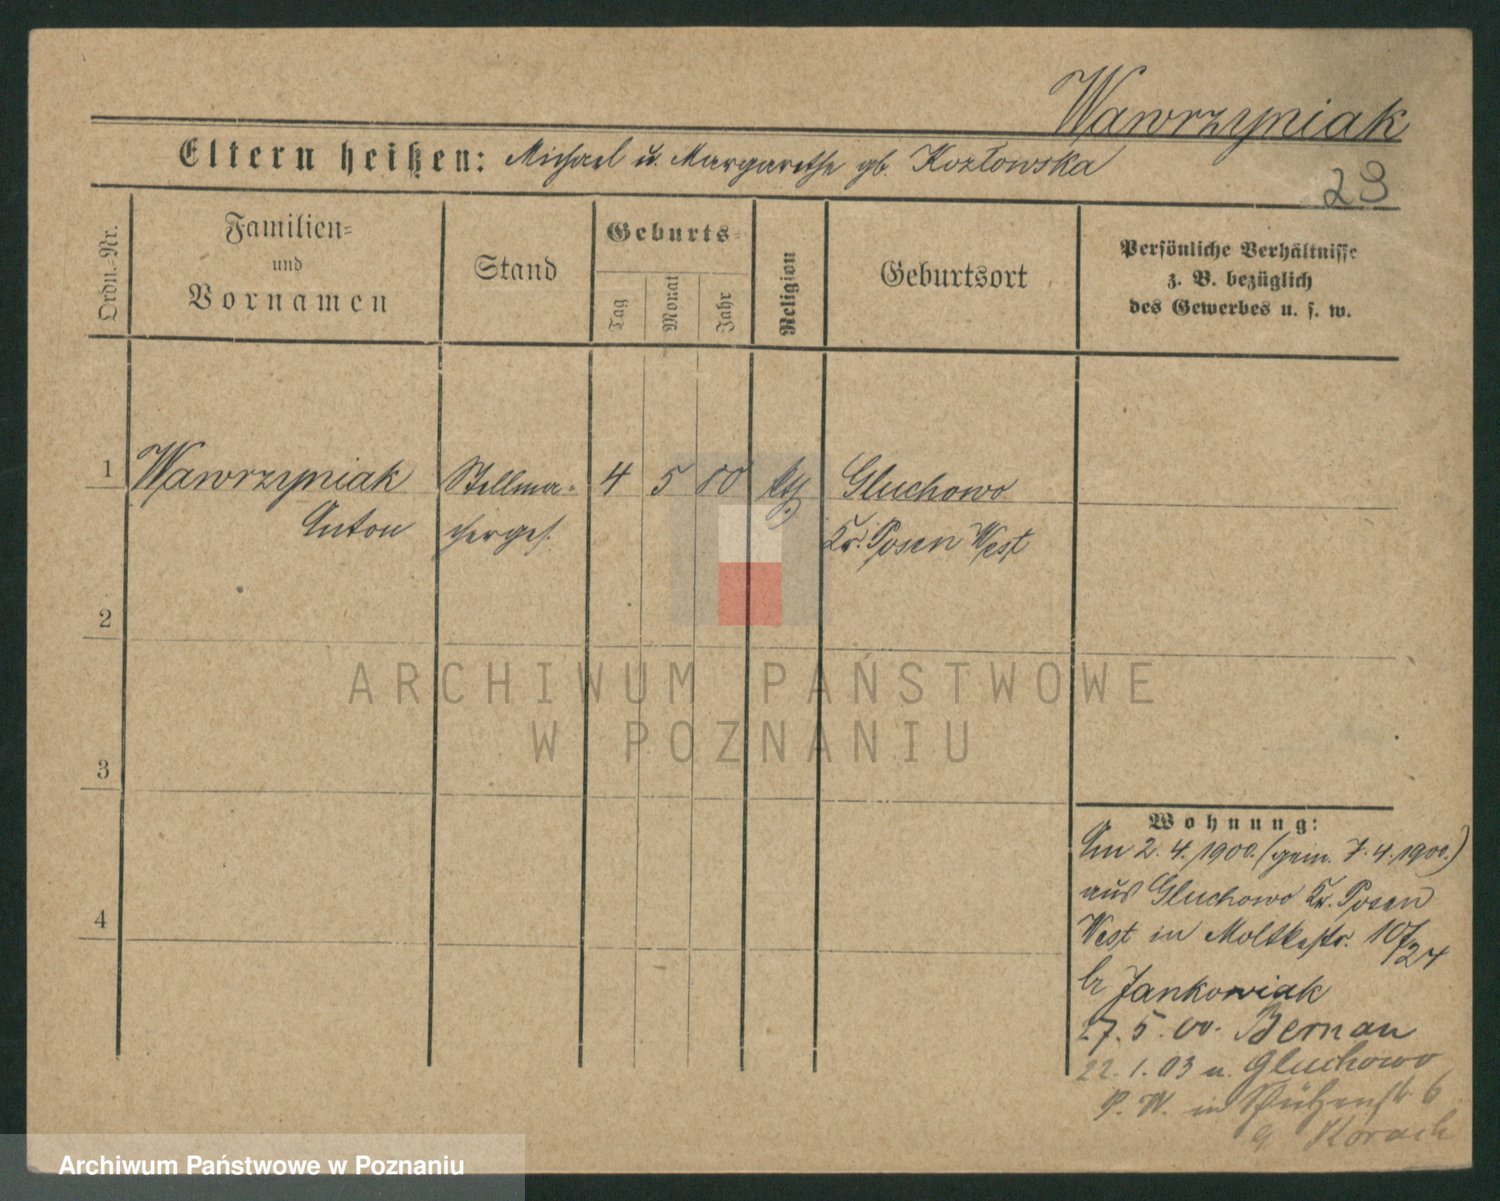 Wawrzyniak
Eltern heißen: Michael u. Margarethe gb. Kozłowska
23
Ordn.-Nr.
Familien-
und
Vornamen
Stand
Geburts-
Tag
Monat
Jahr
Religion
Geburtsort
Persönliche Verhältnisse
z. B. bezüglich
des Gewerbes u. s. w.
1 Wawrzyniak Stellma- 4 5 80 kth Gluchowo
Anton cherges. Kr. Posen West
2
3
4
ARCHIWUM PAŃSTWOWE
W POZNANIU
Wohnung:
Am 2. 4. 1900. (gem. 7. 4. 1900.)
aus Gluchowo Kr. Posen
West in Moltkestr. 10/24
Jankowiak
27. 5. 00. Bernau
22. 1. 03 u. Gluchowo
P. W. in 6
Korach
Archiwum Państwowe w Poznaniu